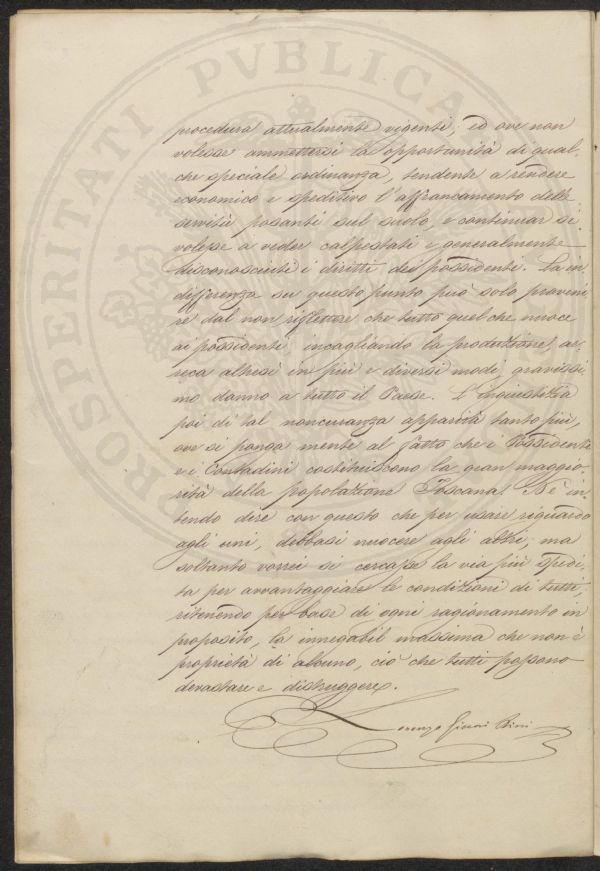 procedura attualmente vigenti; ed ove non
volesse ammettersi la opportunità di qual-
che speciale ordinanza, tendente a rendere
economico e speditivo l'affrancamento delle
servitù posanti sul suolo, e continuar si
volesse a veder calpestati e generalmente
disconosciuti i diritti dei possidenti. La in
differenza su questo punto può solo proveni
re dal non riflettere che tutto quel che nuoce
ai possidenti incagliando la produzione, ar-
reca altresì in più e diversi modi, gravissi
mo danno a tutto il Paese. L'ingiustizia
poi di tal noncuranza apparirà tanto più,
ove si ponga mente al fatto che i Possidenti
e i Contadini costituiscono la gran maggio-
rità della popolazione Toscana. Nè in
tendo dire con questo che per usare riguardo
agli uni, debbasi nuocere agli altri; ma
soltanto vorrei si cercasse la via più spedi-
ta per avvantaggiare le condizioni di tutti,
ritenendo per base di ogni ragionamento in
proposito, la innegabil massima che non è
proprietà di alcuno, ciò che tutti possono
devastare e distruggere.
Lorenzo Ginori
PROSPERITATI PVBLICA